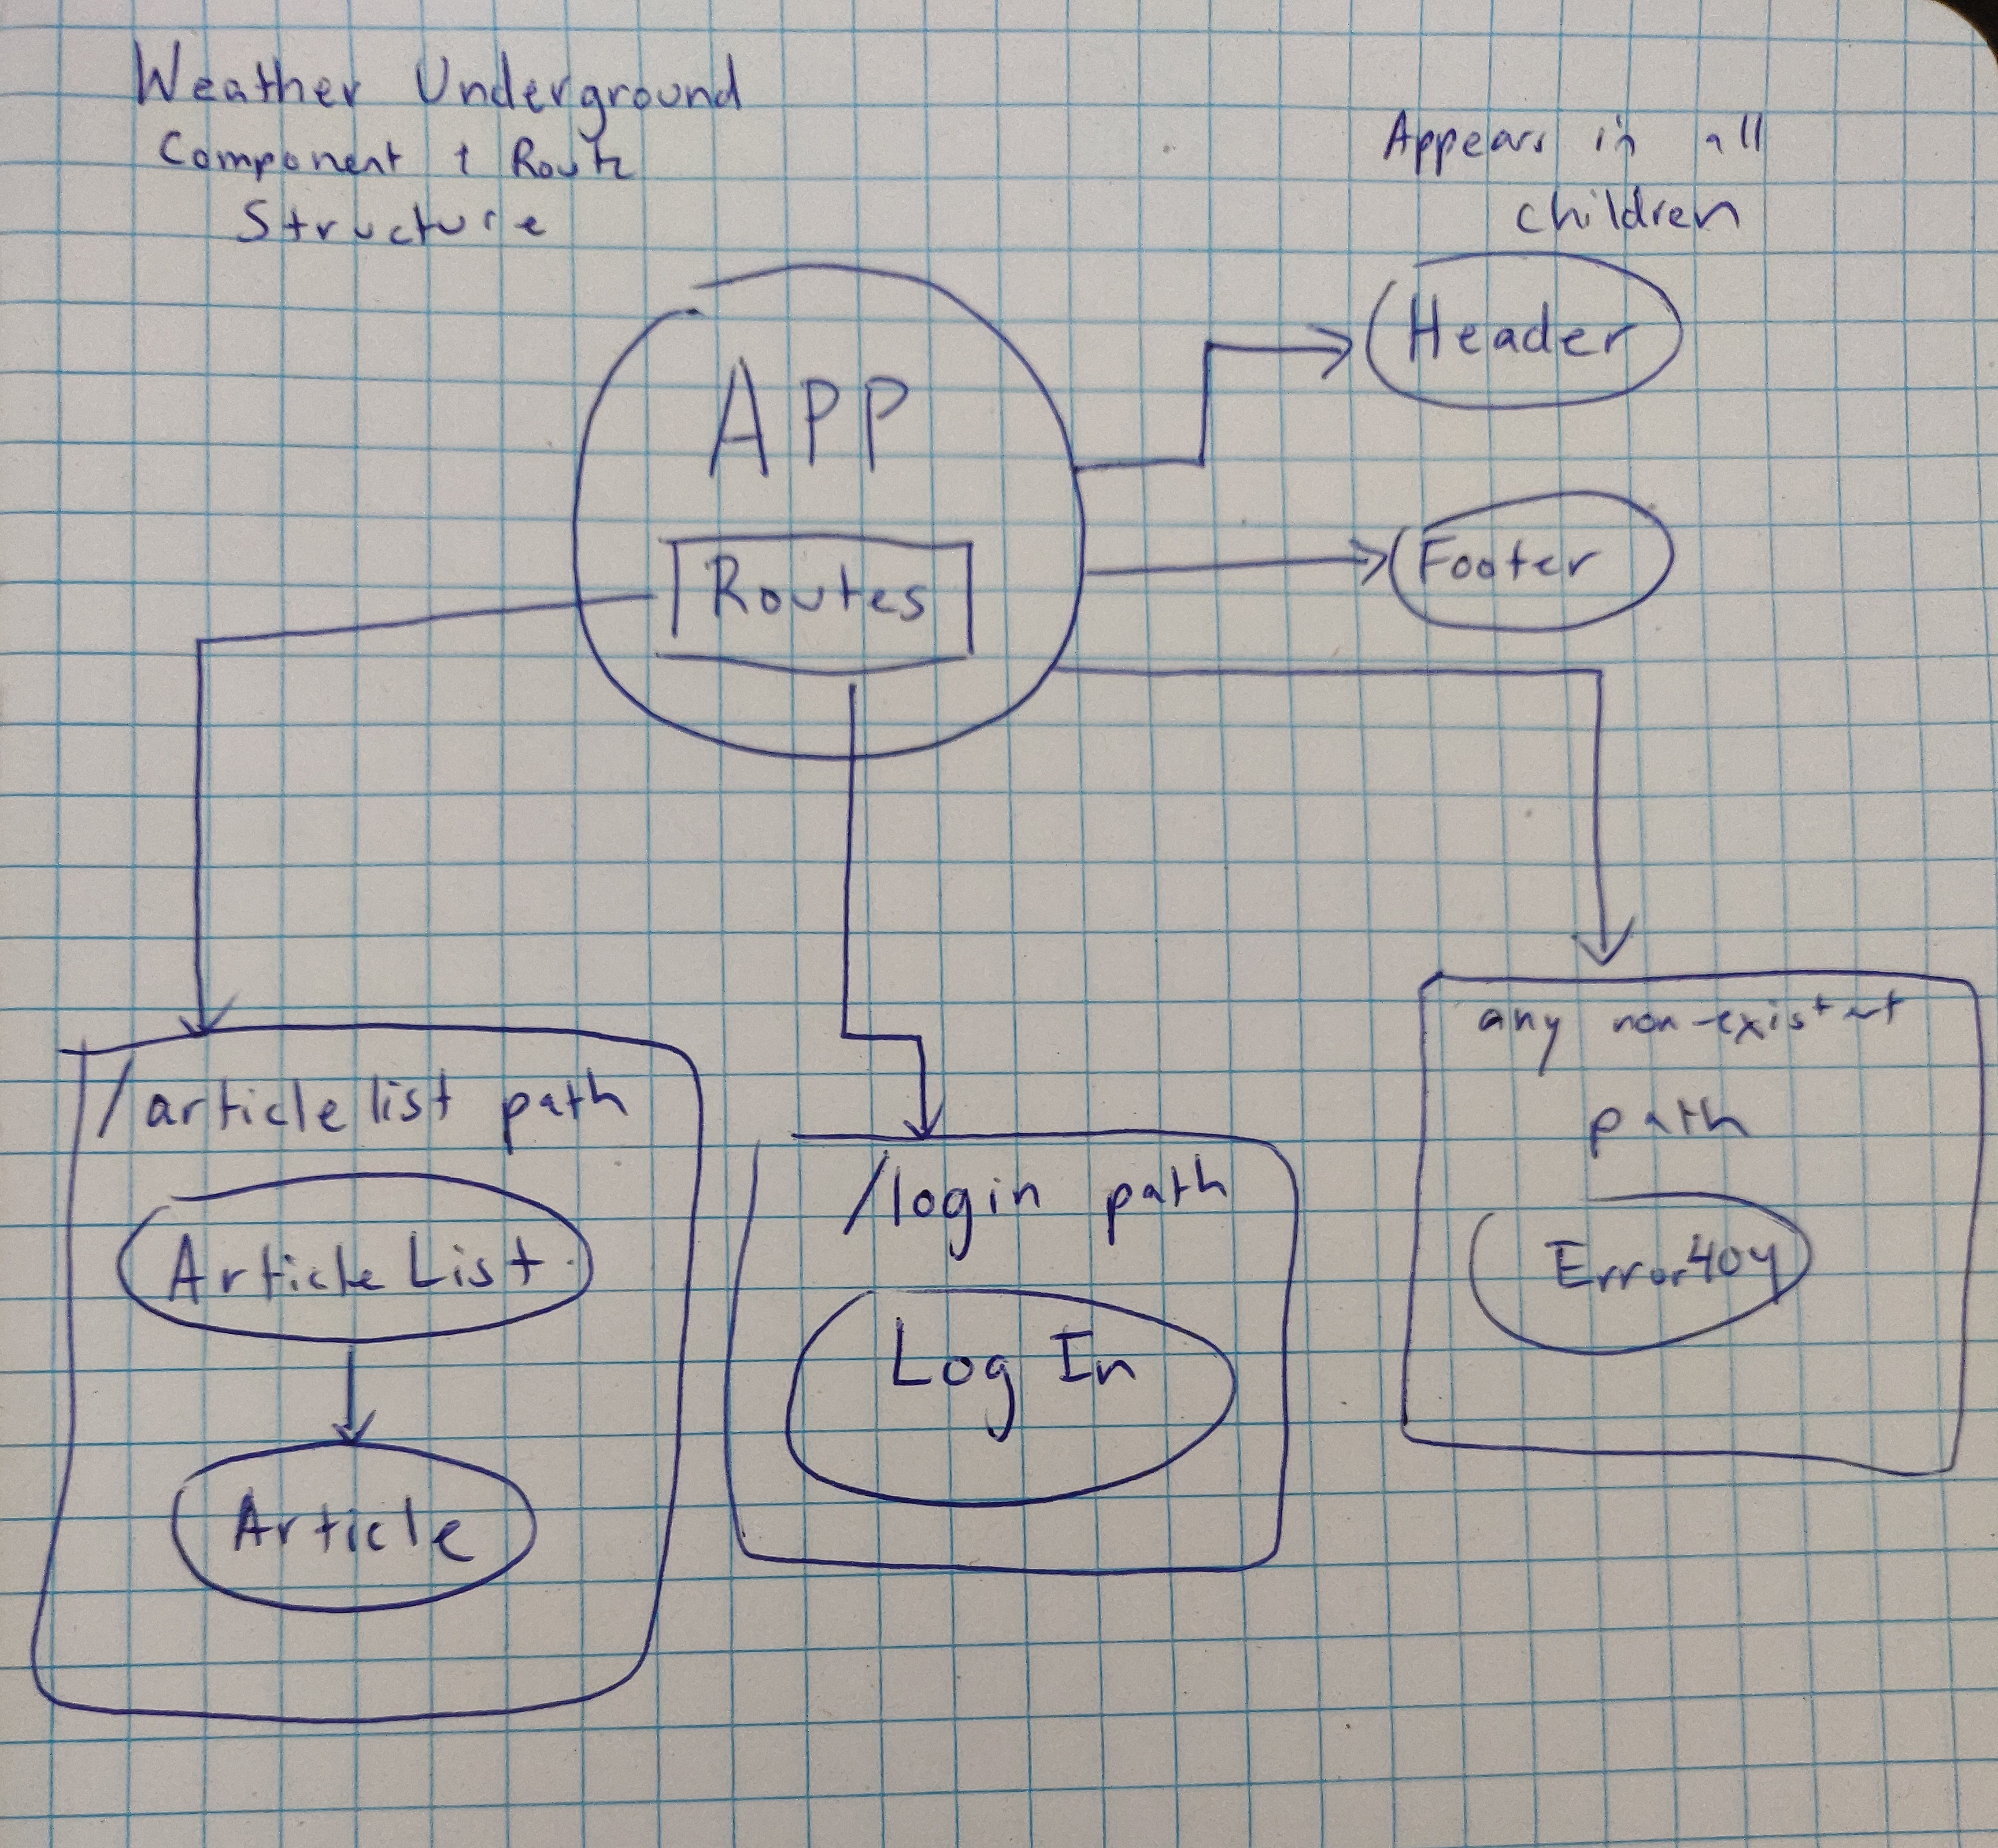 Weather Underground
Component + Route
Structure
Appears in all
children
APP
Routes
Header
Footer
/articlelist path
ArticleList
Article
/login path
Log In
any non-existent
path
Error404